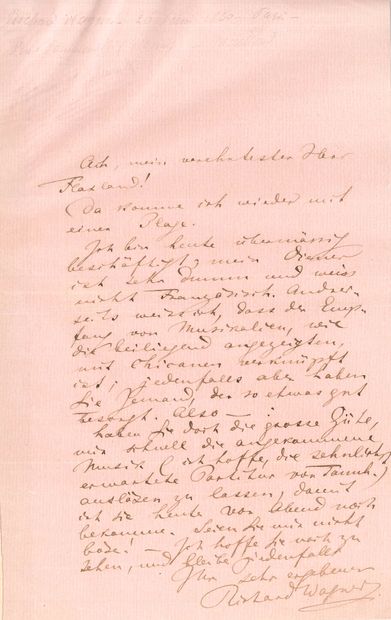 Richard Wagner
Ach, mein verehrtester Herr
Flaxland!
Da komme ich wieder mit
einer Plage.
Ich bin heute übermässig
beschäftigt; mein Diener
ist sehr dumm und weiss
nicht Französisch. Andrer-
seits weiss ich, dass der Emp-
fang von Musikalien, wie
die beiliegend angezeigten,
mit Chicanen verknüpft
ist; jedenfalls aber haben
Sie Jemand, der so etwas gut
besorgt. Also —
haben Sie doch die grosse Güte,
mir schnell die angekommene
Musik (ich hoffe, die sehnlichst
erwartete Partitur von Tannh.)
auslösen zu lassen, damit
ich sie heute vor Abend noch
bekomme. Seien Sie mir nicht
böse. — Ich hoffe Sie noch zu
sehen, und bleibe jedenfalls
Ihr sehr ergebener
Richard Wagner